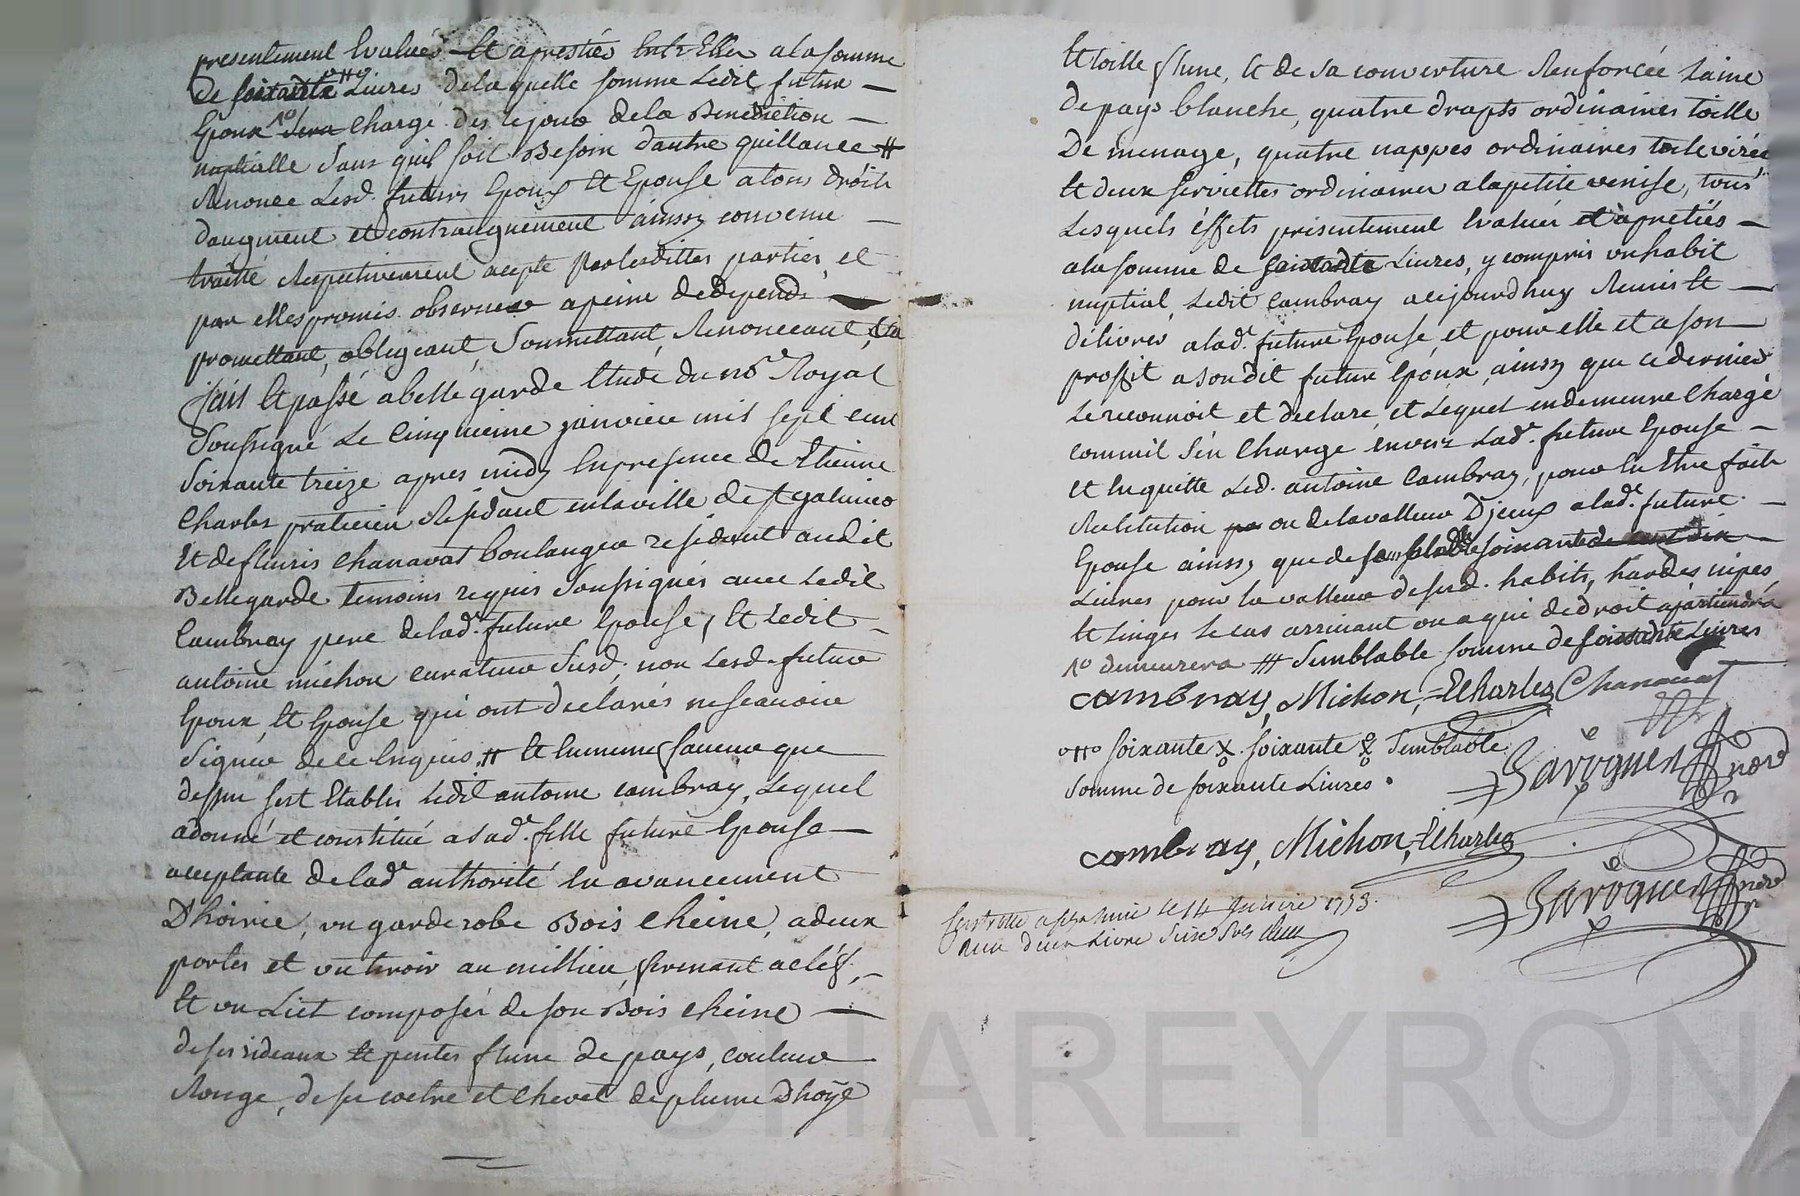 presentement Evalués Et apresties Entr Elles a la somme
de soixante Livres de laquelle somme Ledit futur
Epoux sera chargé des le jour de la Benediction
nuptialle sans quil soit Besoin dautre quittance #
Renonce Lesd. futurs Epoux Et Epouse a tous droits
daugment et contraugment ainssy convenu
traitté Respectivement acepté par lesdittes parties et
par elles promis observer a peine de depends
promettant, obligeant, Soumettant, Renonceant, &a
fait Et passé a bellegarde Etude du nore Royal
Soussigné Le Cinquieme janvier mil sept cent
Soixante treize apres midy En presence de Etienne
Charles praticien Residant en la ville de st galmier
Et de fleuris chanavat boulanger residant audit
Bellegarde temoins requis Soussignés avec Ledit
Cambray pere de lad. future Epouse, Et Ledit
antoine michon curateur Susd. non Lesd. future
Epoux, Et Epouse qui ont declarés ne scavoir
Signer de ce Enquis, # Et tumeme faveur que
dessus sest Etabli Ledit antoine cambray, Lequel
a donné et constitué a Lad. fille future Epouse
acceptante de lad. authorité En avancement
D'hoirie, un garderobe Bois cheine, a deux
portes et un tiroir au millieu fermant a clef,
Et un Lict composéi de son Bois cheine
de ses rideaux Et pentes flune de pays, couleur
Rouge, de se coetre et chevet de plume D'hoÿe
Et toille flune, Et de sa couverture Renforcée Laine
de pays blanche, quatre drapts ordinaires toille
De menage, quatre nappes ordinaires toile virée
Et deux serviettes ordinaires a la petite venise, tous
Lesquels éffets presentement Evalués et apretiés
a la somme de soixante Livres, y compris un habit
nuptial, Ledit Cambray a cejourdhuy Remis Et
délivrés a lad. future Epouse, et pour elle et a son
proffit a son dit future Epoux, ainsy que ce dernier
Le reconnoit et declare, et Lequel en demeure Chargé
comm'il s'en Charge envers Lad. future Epouse
Et En quitte Led. antoine Cambray, pour En Etre fait
Restitution ou de la valleur D'jceux a lad. future
Epouse ainssy que de semblable soixante de
Livres pour la valleur desd. habits, hardes, nipes
Et Linges Le cas arrivant ou a qui de droit apartiendra
no demeurera # Semblable somme de soixante Livres
Cambray, Michon, ECharles Chanavat
soixante X. soixante & Semblable
Somme de soixante Livres.
Baroquer nore
Cambray, Michon, ECharles
Baroquer nore
Controllé a st galmier le 14 Janvier 1773.
Recu deux Livre Seize Sols
CHAREYRON